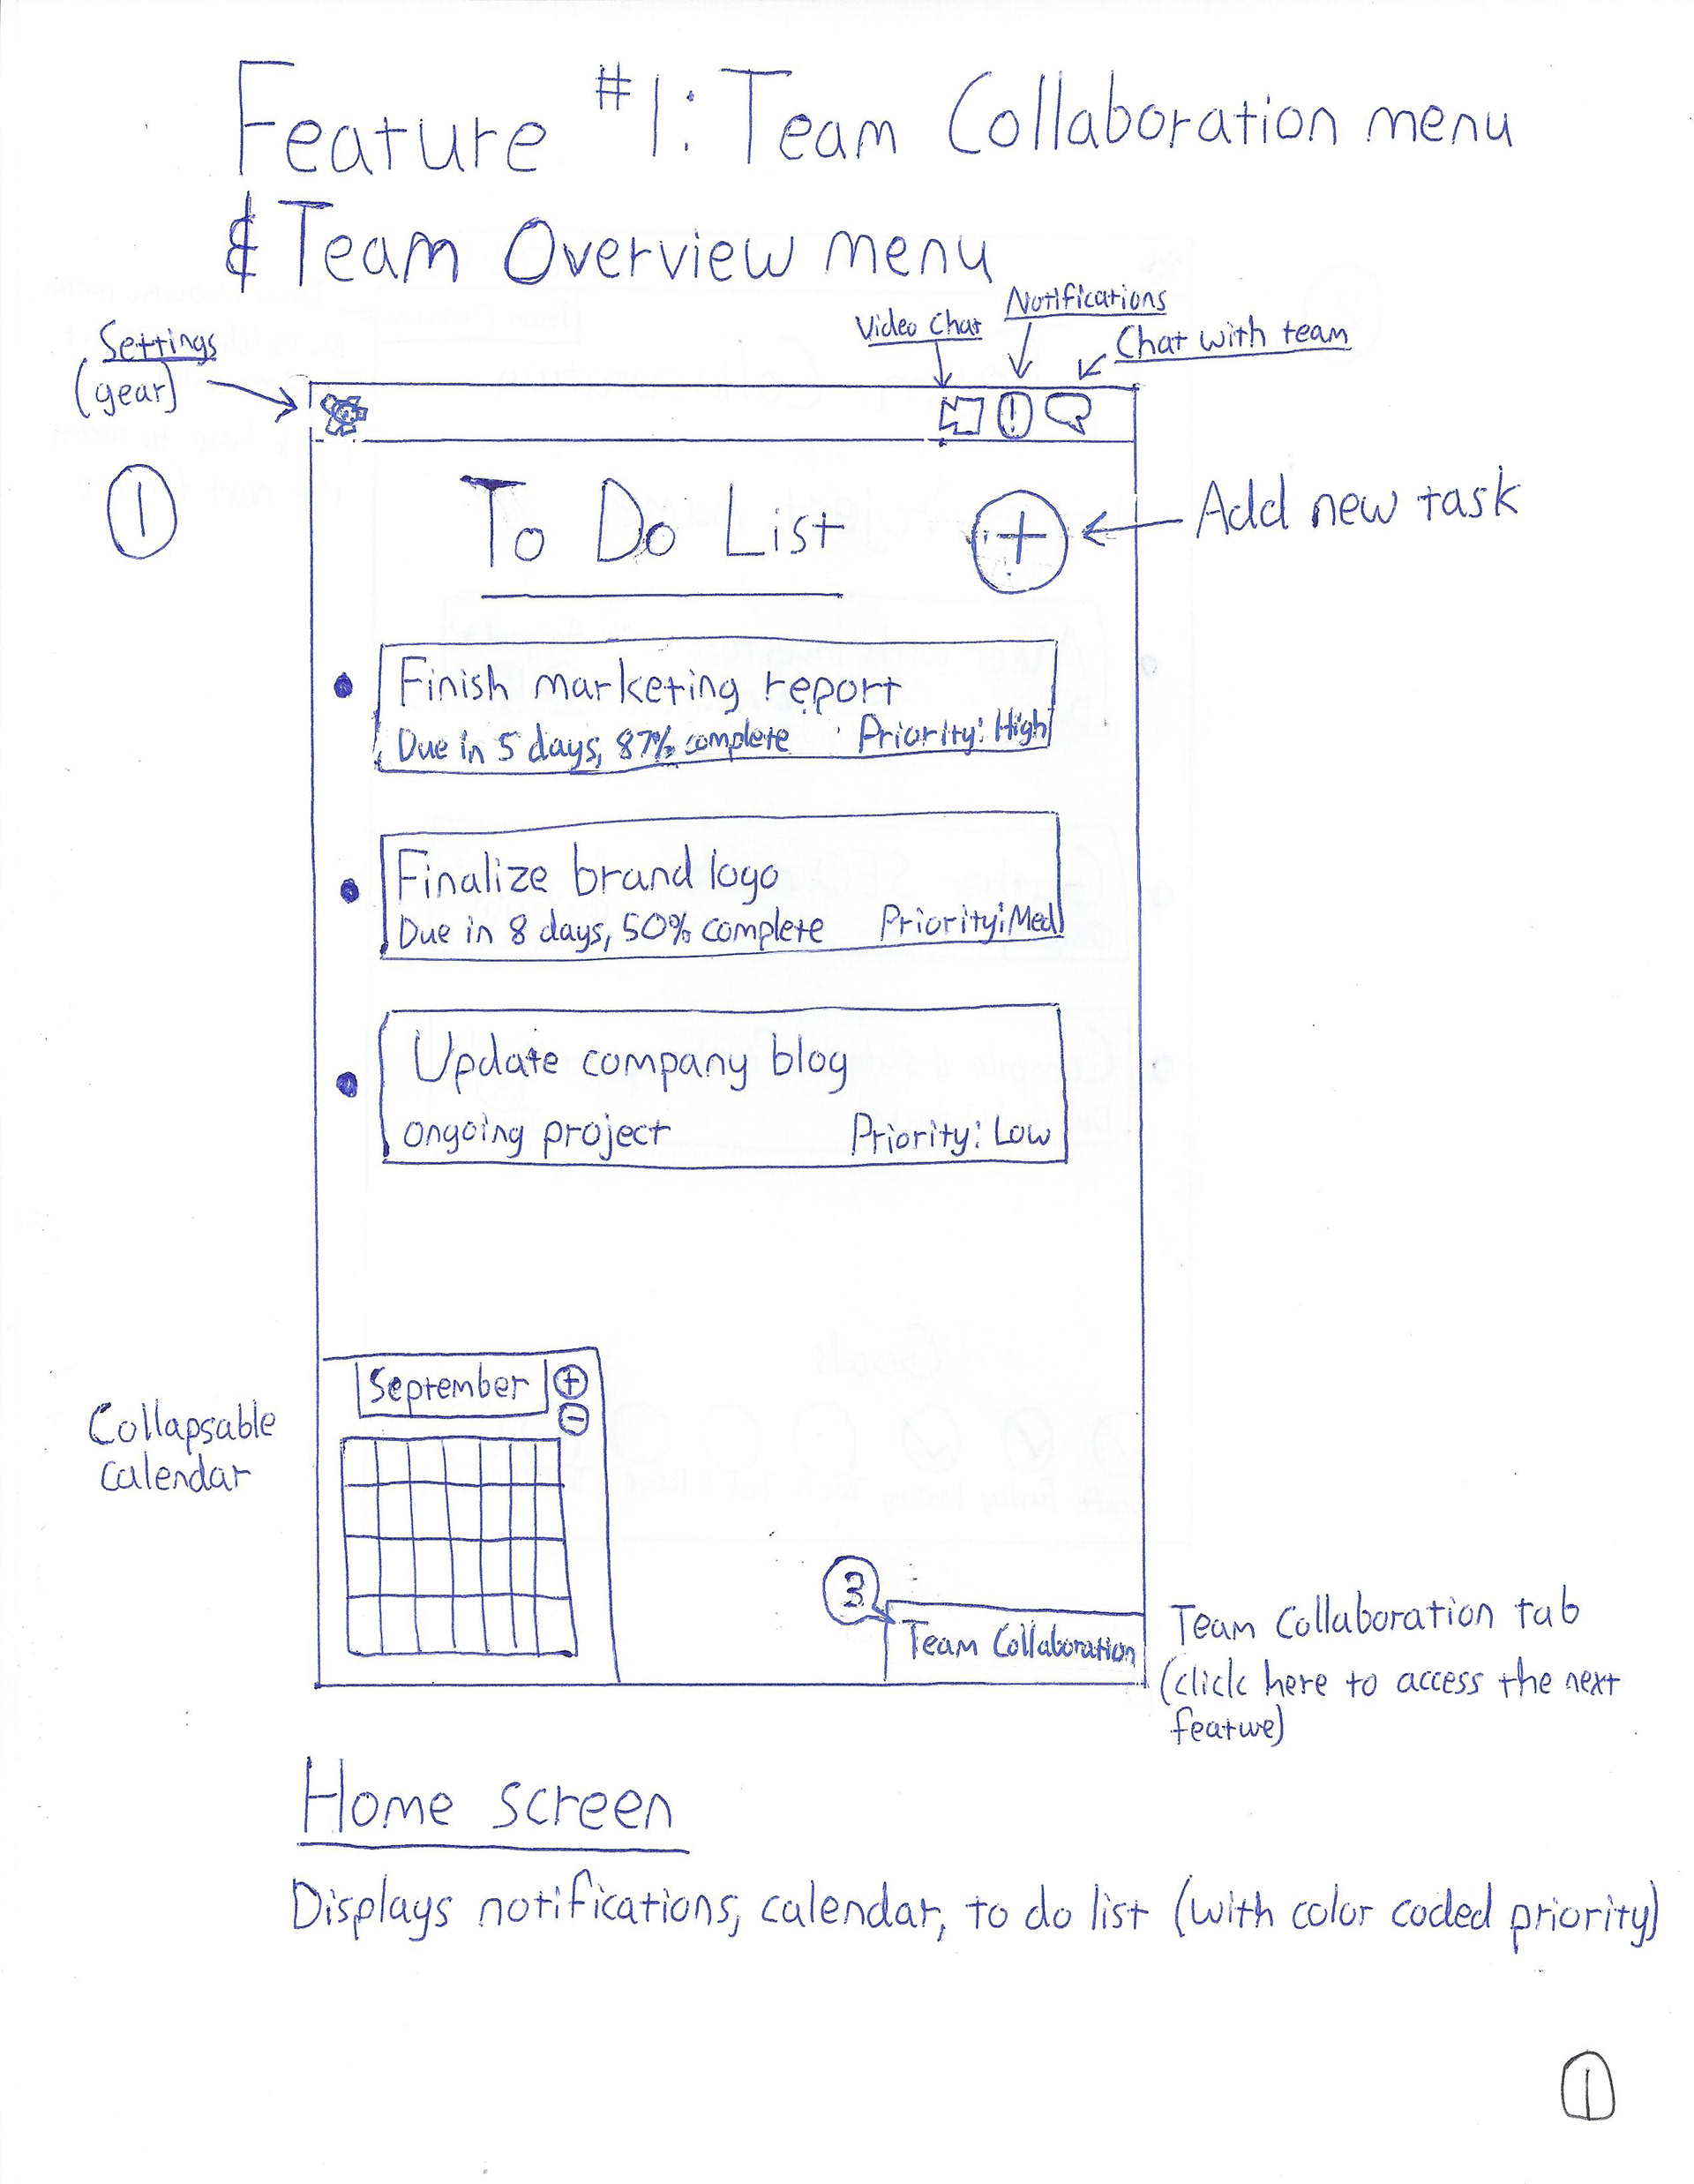 Feature #1: Team Collaboration menu
& Team Overview menu
Settings
(gear)
Video Chat
Notifications
Chat with team
!
1
To Do List
+
Add new task
Finish marketing report
Due in 5 days, 87% complete Priority: High
Finalize brand logo
Due in 8 days, 50% complete Priority: Med
Update company blog
ongoing project Priority: Low
September
+
-
Collapsable
calendar
3
Team Collaboration
Team Collaboration tab
(click here to access the next
feature)
Home screen
Displays notifications, calendar, to do list (with color coded priority)
1